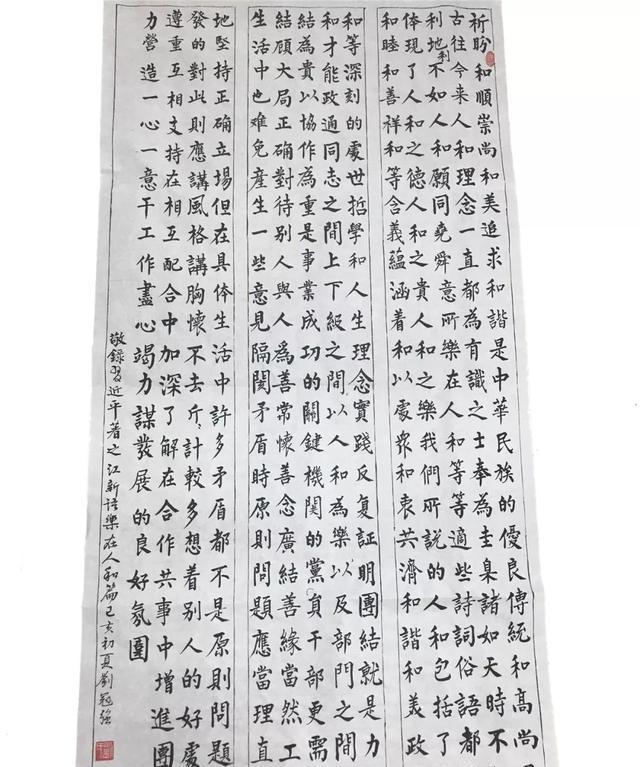 祈盼和順崇尚和美追求和諧是中華民族的優良傳統和高尚
古往今来人和理念一直都為有識之士奉為圭臬諸如天時不
利地利不如人和願同堯舜意所樂在人和等等適些詩詞俗語都
体現了人和之德人和之貴人和之樂我們所說的人和包括了
和睦和善祥和等含義蘊涵着和以處衆和衷共濟和諧和美政
和等深刻的處世哲學和人生理念實踐反复証明團結就是力
和才能政通同志之間上下級之間以人和為樂以及部門之間
結為貴以協作為重是事業成功的關鍵機関的黨員干部更需
結顧大局正确對待别人與人為善常懷善念廣結善緣當然工
生活中也難免産生一些意見隔関矛盾時原則問題應當理直
地堅持正确立場但在具体生活中許多矛盾都不是原則問題
發的對此則應講風格講胸懷不去斤斤計較多想着别人的好處
遵重互相支持在相互配合中加深了解在合作共事中增進團
力營造一心一意干工作盡心竭力謀發展的良好氛圍
敬錄習近平著之江新語樂在人和篇己亥初夏劉冠強